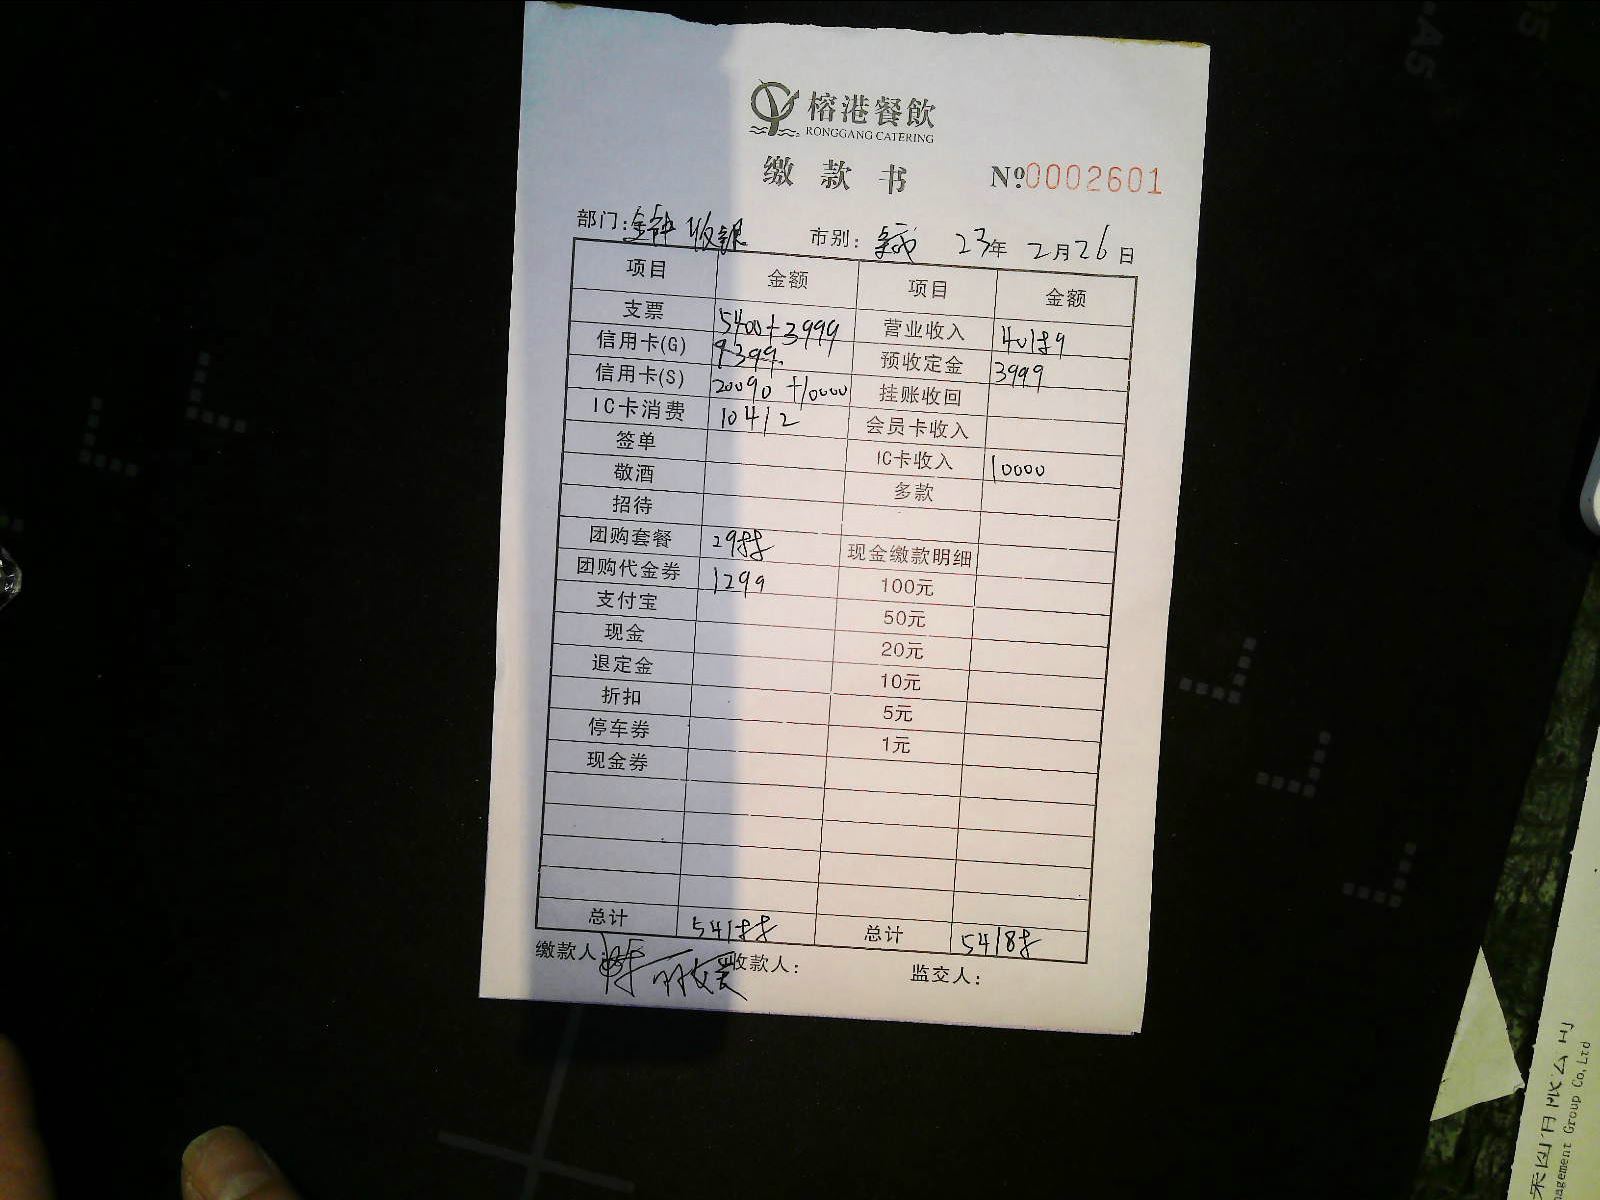 榕港餐飲
RONGGANG CATERING
缴款书 Nº0002601
部门: 金钟 收银 市别: 23年 2月26日
项目 金额 项目 金额
支票 5400+3999 营业收入 40189
信用卡(G) 9399 预收定金 3999
信用卡(S) 20090 +10000 挂账收回
IC卡消费 10412 会员卡收入
签单 IC卡收入 10000
敬酒 多款
招待
团购套餐 2988 现金缴款明细
团购代金券 1299 100元
支付宝 50元
现金 20元
退定金 10元
折扣 5元
停车券 1元
现金券
总计 54188 总计 54188
缴款人: 收款人: 监交人:
agement Group Co,Ltd